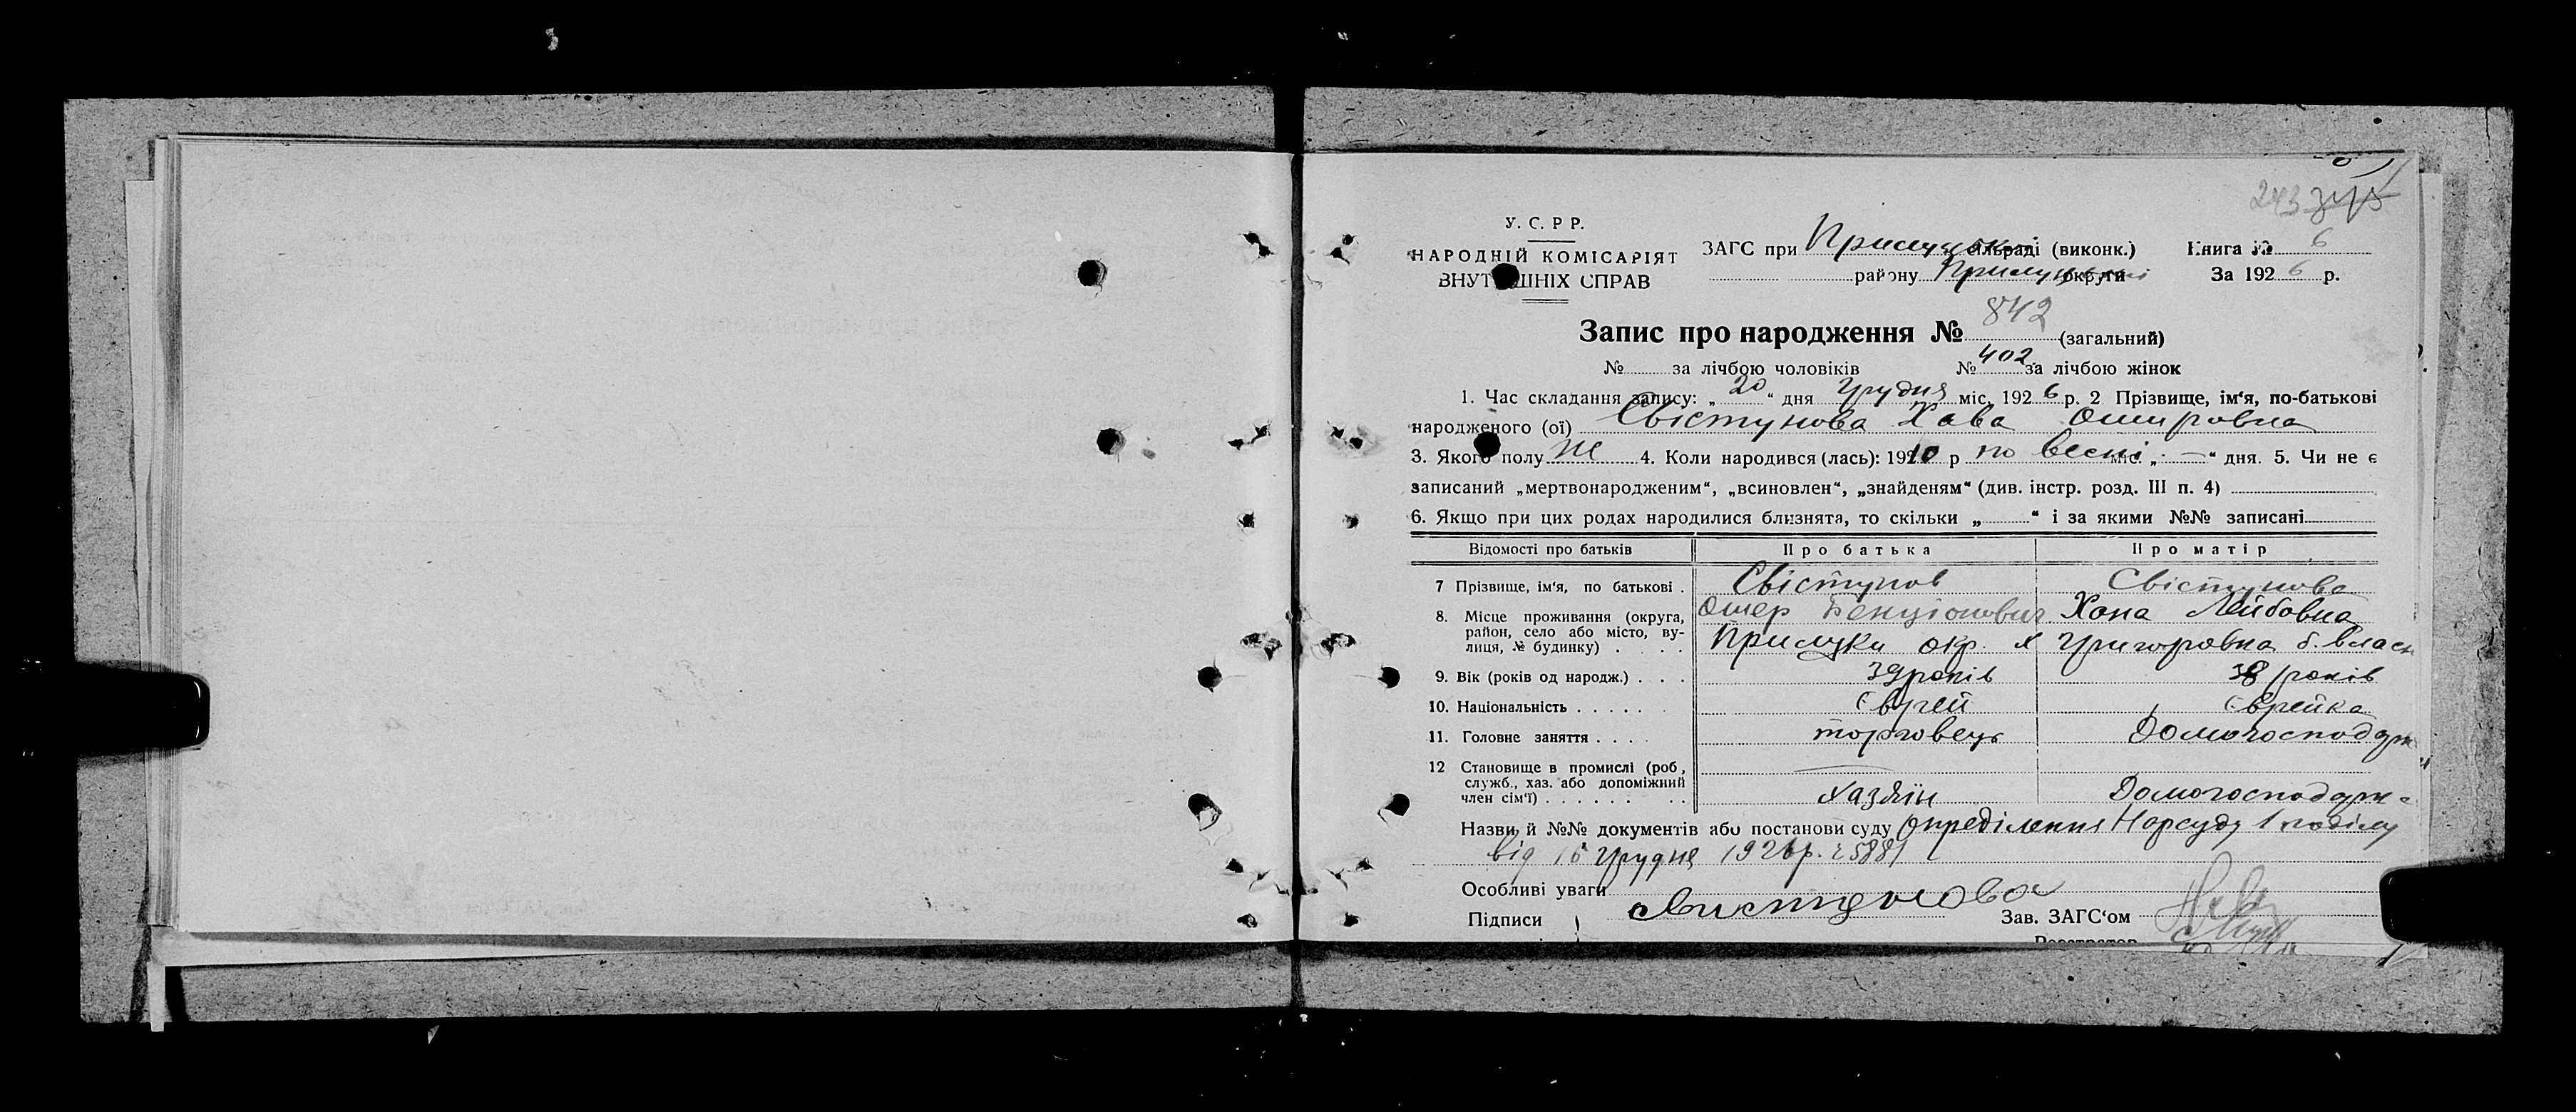 243 375
У. С. Р Р.
НАРОДНІЙ КОМІСАРІЯТ
ВНУТ ШНІХ СПРАВ
ЗАГС при Прилуцькі сільраді (виконк.) Книга № 6
району Прилуцькі округи За 1926 р.
Запис про народження № 842 (загальний)
№ за лічбою чоловіків № 402 за лічбою жінок
1. Час складання запису: „20“ дня Грудня міс. 1926 р. 2 Прізвище, ім‘я, по-батькові
народженого (ої) Свістунова Хава Ошировна
3. Якого полу Ж 4. Коли народився (лась): 1910 р по весні міс. „—“ дня. 5. Чи не є
записаний „мертвонародженим“, „всиновлен“, „знайденям“ (див. інстр. розд. III п. 4)
6. Якщо при цих родах народилися близнята, то скільки „ “ і за якими №№ записані
Відомості про батьків Про батька Про матір
7 Прізвище, ім‘я, по батькові . Свістунов Свістунова
Ошер Бенціонович Хона Лейбовна
8. Місце проживання (округа, район, село або місто, ву-лиця, № будинку) . . . . Прилуки окр. Григоровна б. власн
9. Вік (років од народж.) . . . 39 років 38 років
10. Національність . . . . . . Єврей Єврейка
11. Головне заняття . . . . торговець Домогосподарк
12 Становище в промислі (роб, служб., хаз. або допоміжний член сім‘ї) . . . . . . . . Хазяїн Домогосподарк
Назви й №№ документів або постанови суду Определення Нарсуду 1 поділу
від 16 Грудня 1926 р. 5881
Особливі уваги
Підписи Свистунова Зав. ЗАГС‘ом
Реєстратор